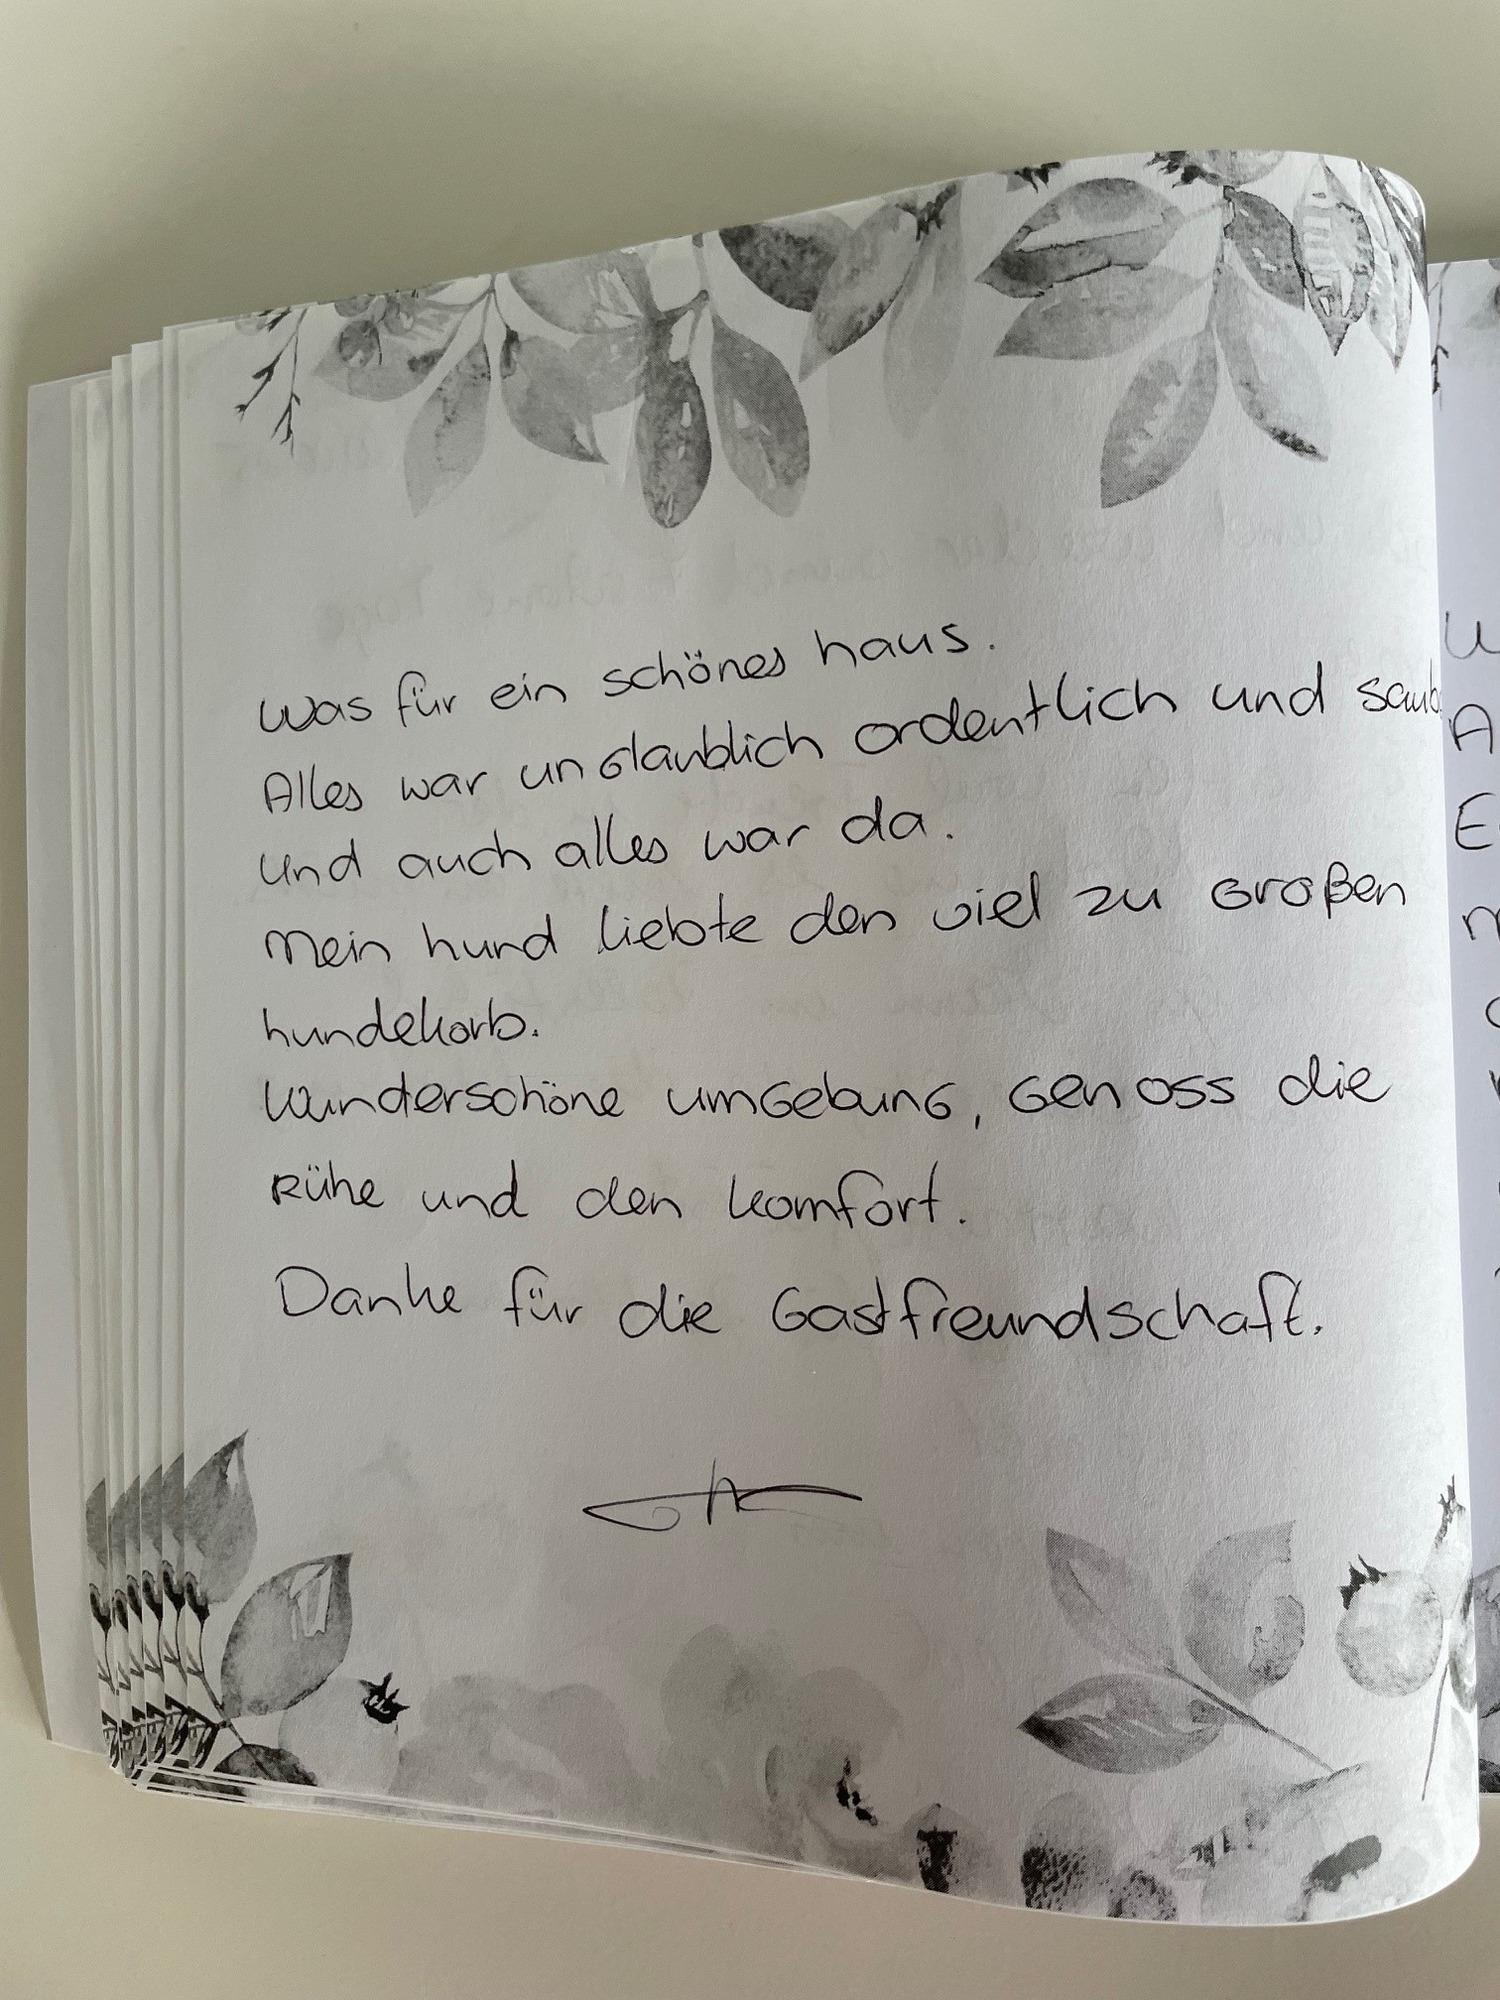 Was für ein schönes haus.
Alles war unglaublich ordentlich und saub
Und auch alles war da.
Mein hund liebte den viel zu Großen
hundekorb.
Wunderschöne umgebung, Genoss die
Rühe und den komfort.
Danke für die Gastfreundschaft.